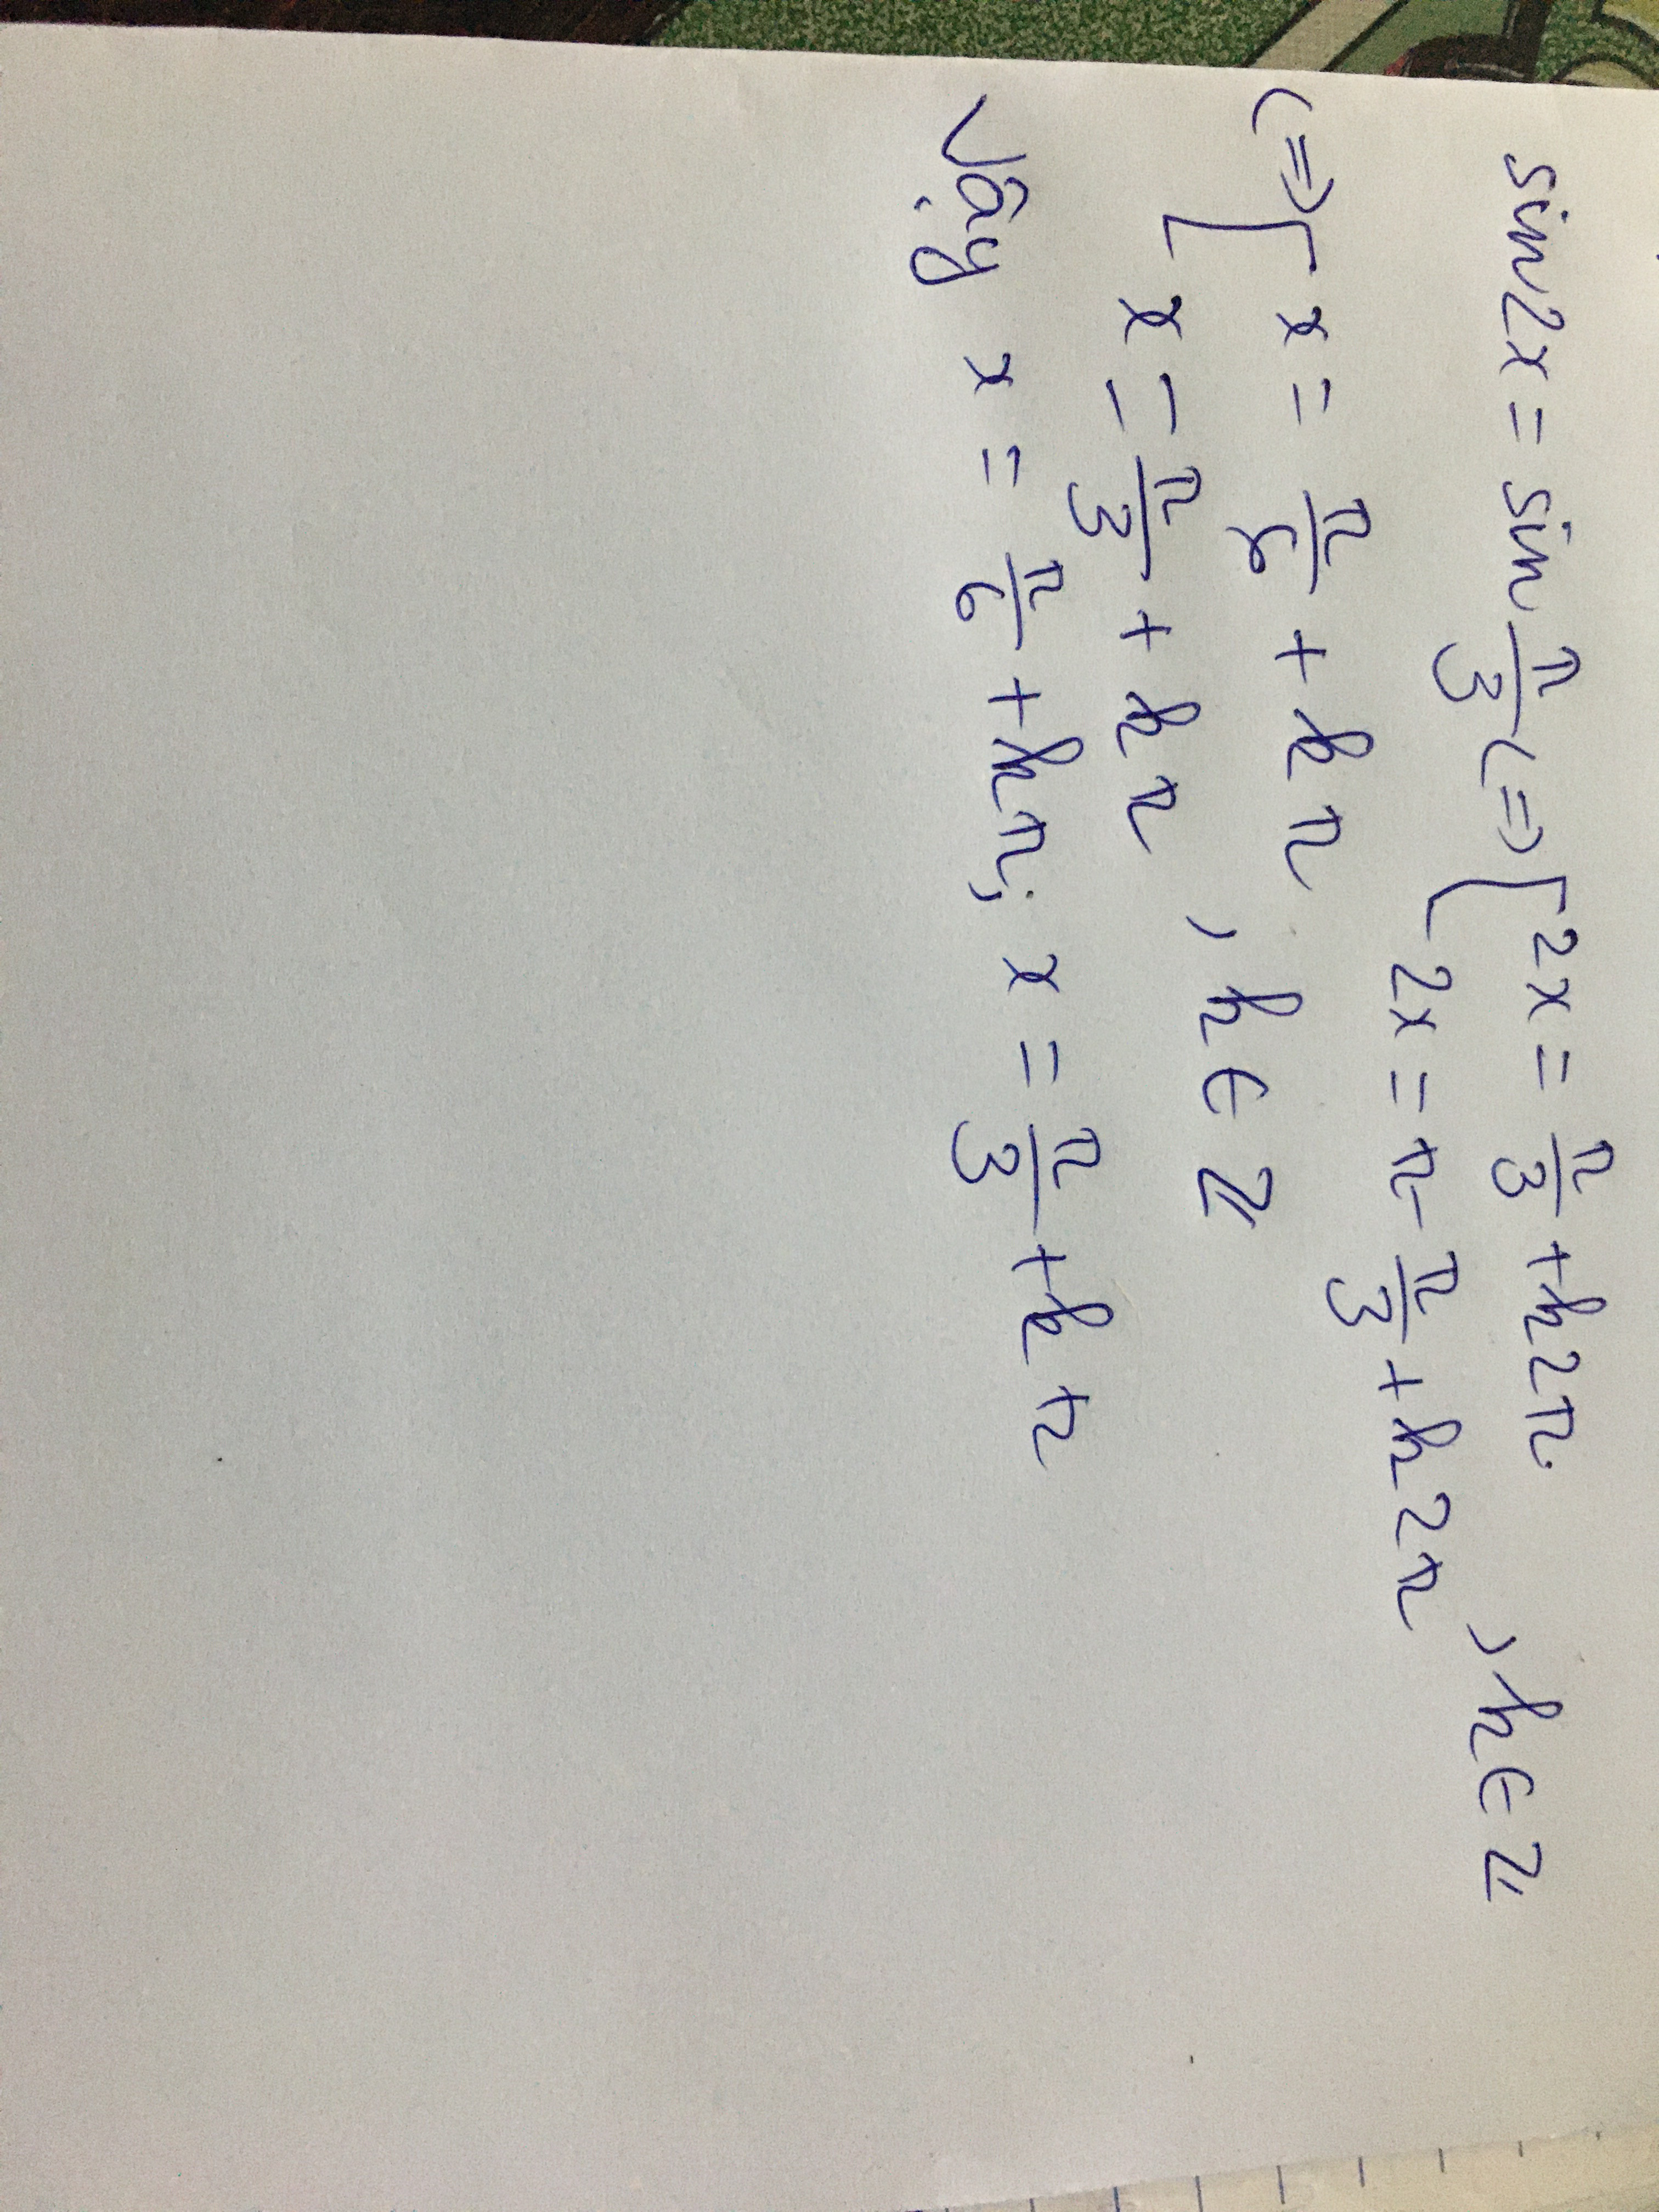 sin2x = sin π/3 <=> [ 2x = π/3 + k2π
2x = π - π/3 + k2π , k ∈ Z
<=> [ x = π/6 + kπ
x = π/3 + kπ , k ∈ Z
Vậy x = π/6 + kπ; x = π/3 + kπ